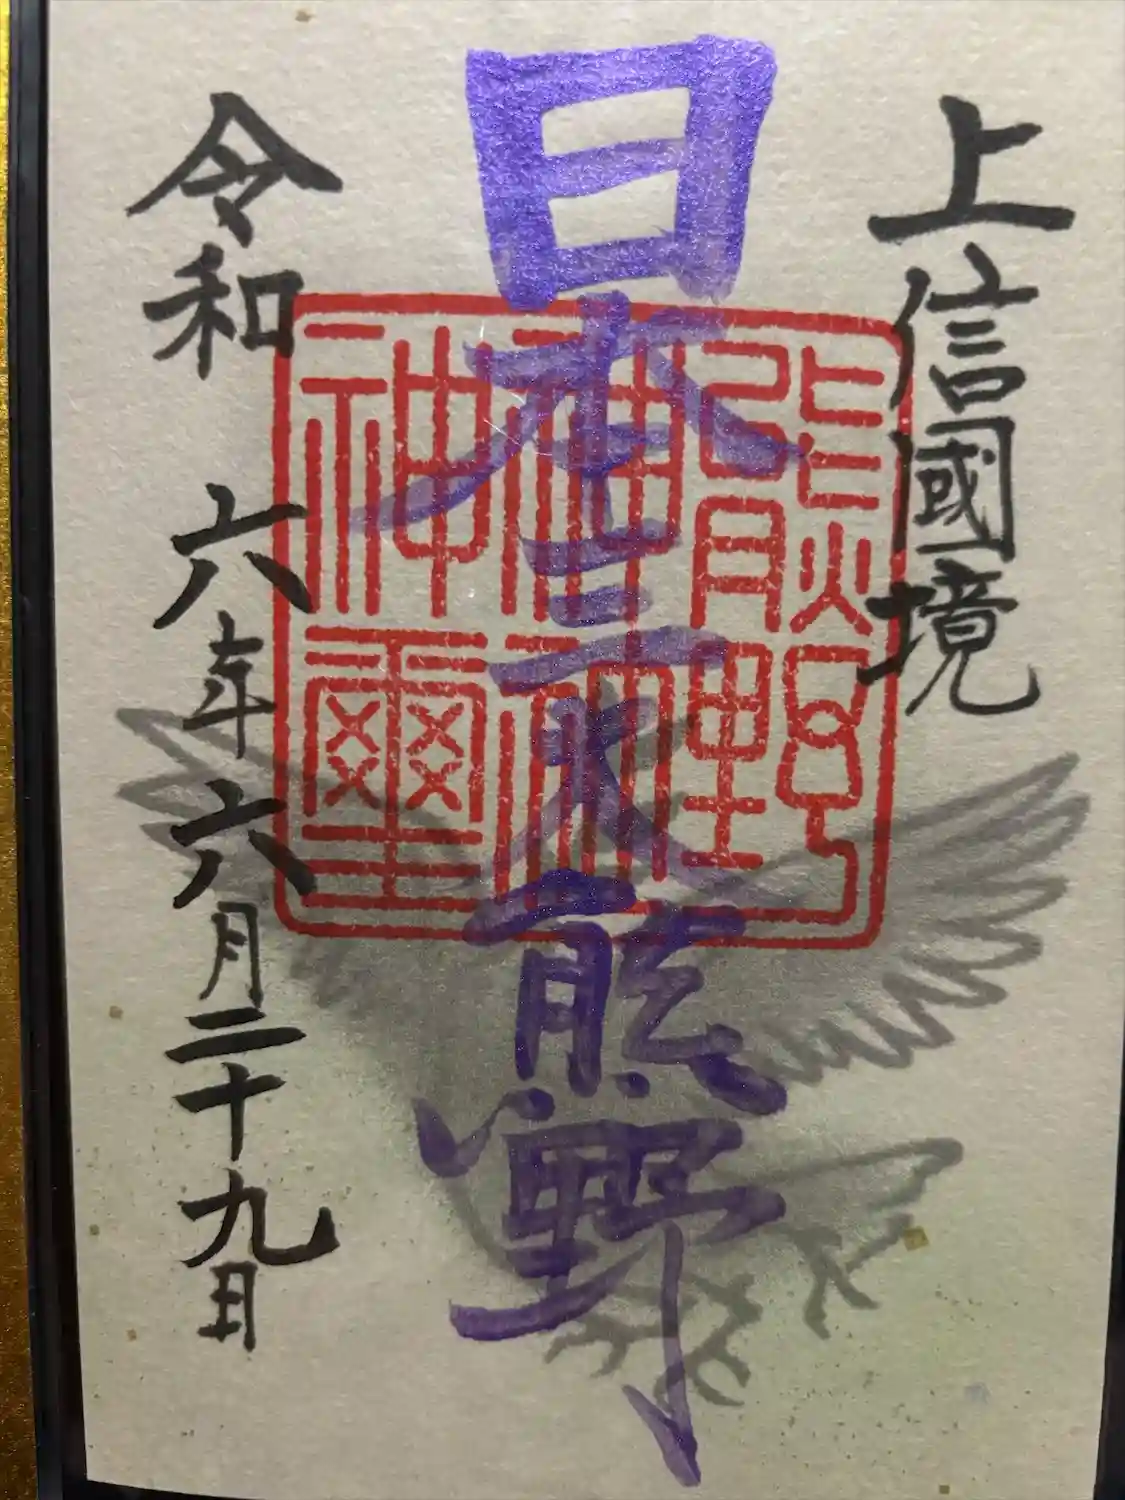 上信國境
日本三大熊野
熊野
神社
神璽
令和六年六月二十九日